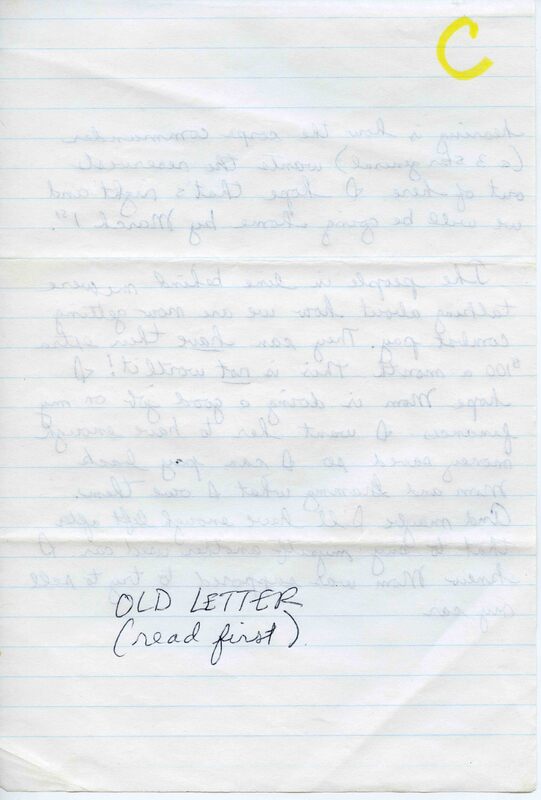 C
hearing is how the corps commander
(a 3 star general) wants the reservist
out of here. I hope that's right and
we will be going "home by March 1st".
The people in line behind me were
talking about how we are now getting
combat pay. They can have their extra
$100 a month. This is not worth it! I
hope Mom is doing a good job on my
finances. I want her to have enough
money saved so I can pay back
Mom and Grammy what I owe them.
And maybe I'll have enough left after
that to buy myself another used car. I
knew Mom was supposed to try to sell
my car.
OLD LETTER
(read first).